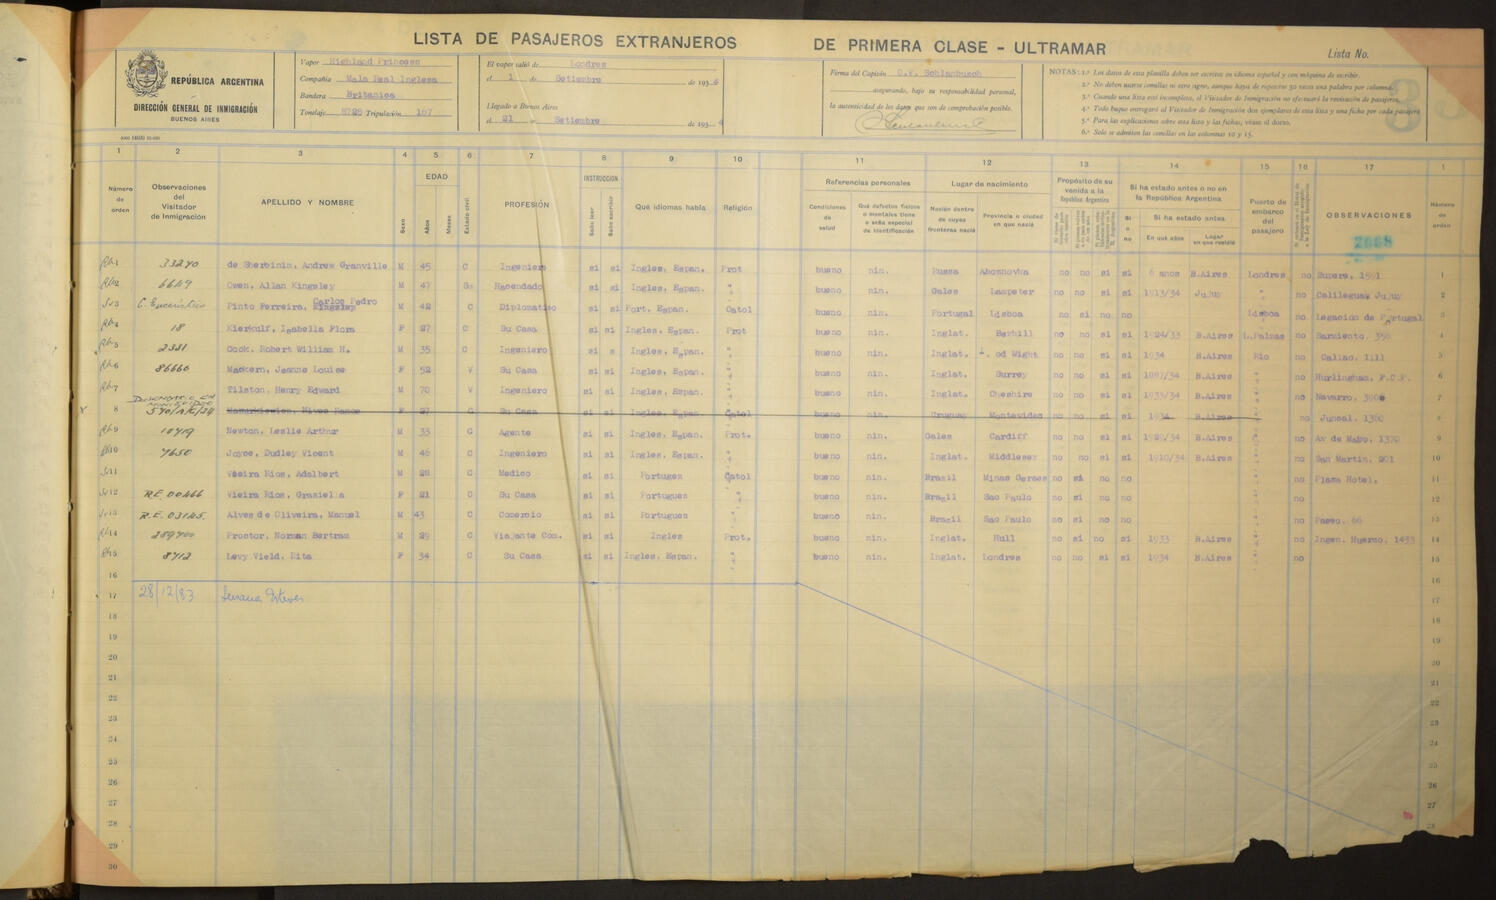 LISTA DE PASAJEROS EXTRANJEROS DE PRIMERA CLASE - ULTRAMAR
Lista No.
REPÚBLICA ARGENTINA
DIRECCIÓN GENERAL DE INMIGRACIÓN
BUENOS AIRES
Vapor Highland Princess
Compañía Mala Real Inglesa
Bandera Britanica
Tonelaje 8728 Tripulación 167
El vapor salió de Londres
el 1 de Setiembre de 1934
Llegado a Buenos Aires
el 21 de Setiembre de 1934
Firma del Capitán
asegurando, bajo su responsabilidad personal,
la autenticidad de los datos que son de comprobación posible.
NOTAS: 1.º Los datos de esta planilla deben ser escritos en idioma español y con máquina de escribir.
2.º No deben usarse comillas ni otro signo, aunque haya de repetirse 30 veces una palabra por columna.
3.º Cuando una lista esté incompleta, el Visitador de Inmigración no efectuará la revisación de pasajeros.
4.º Todo buque entregará al Visitador de Inmigración dos ejemplares de esta lista y una ficha por cada pasajero
5.º Para las explicaciones sobre esta lista y las fichas, véase al dorso.
6.º Solo se admiten las comillas en las columnas 10 y 15.
1 2 3 4 5 6 7 8 9 10 11 12 13 14 15 16 17 1
Número de orden
Observaciones del Visitador de Inmigración
APELLIDO Y NOMBRE
Sexo
EDAD
Años
Meses
Estado civil
PROFESIÓN
INSTRUCCION
Sabe leer
Sabe escribir
Qué idiomas habla
Religión
Referencias personales
Condiciones de salud
Qué defectos físicos o mentales tiene o seña especial de identificación
Lugar de nacimiento
Nación dentro de cuyas fronteras nació
Provincia o ciudad en que nació
Propósito de su venida a la República Argentina
Si ha estado antes o no en la República Argentina
si o no
Si ha estado antes
En qué años
Lugar en que residió
Puerto de embarco del pasajero
OBSERVACIONES
2668
Número de orden
1 33270 de Sherbinin, Andrew Granville M 45 C Ingeniero si si Ingles, Espan. Prot bueno nin. Russa no no si si 6 anos B.Aires Londres no Sucre, 1591 1
2 6649 Owen, Allan Kingsley M 47 Hacendado si si Ingles, Espan. " bueno nin. Gales Lampeter no no si si 1913/34 Jujuy " no Calilegua Jujuy 2
3 Pinto Ferreira, Carlos Pedro M 42 C Diplomatico si si Port. Espan. Catol bueno nin. Portugal Lisboa no si no no Lisboa no Legacion de Portugal 3
4 18 Kierkulf, Isabella Flora F 27 C Su Casa si si Ingles, Espan. Prot bueno nin. Inglat. Bexhill no no si si 1924/33 B.Aires L.Palmas no Sarmiento, 356 4
5 2381 Cook, Robert William H. M 35 C Ingeniero si s Ingles, Espan. " bueno nin. Inglat. I. od Wight no no si si 1934 B.Aires Rio no Callao, 1111 5
6 86660 Mackern, Jeanne Louise F 52 V Su Casa si si Ingles, Espan. " bueno nin. Inglat. Surrey no no si si B.Aires " no Hurlingham, F.C.P. 6
7 Tilston, Henry Edward M 70 V Ingeniero si si Ingles, Espan. " bueno nin. Inglat. Cheshire no no si si B.Aires " no Navarro, 3906 7
8 F 27 C Su Casa si si Ingles, Espan Catol bueno nin. Uruguay Montevideo no no si si 1934 B.Aires " no Juncal, 1360 8
9 Newton, Leslie Arthur M 33 C Agente si si Ingles, Espan. Prot. bueno nin. Gales Cardiff no no si si 1920/34 B.Aires " no Av de Mayo, 1370 9
10 7650 Joyce, Dudley Vicent M 46 C Ingeniero si si Ingles, Espan. " bueno nin. Inglat. Middlesex no no si si 1910/34 B.Aires " no San Martin, 201 10
11 Vieira Rios, Adalbert M 28 C Medico si si Portugues Catol bueno nin. Brasil Minas Geraes no si no no " no Plaza Hotel, 11
12 R.E. 00466 Vieira Rios, Graziella F 21 C Su Casa si si Portugues " bueno nin. Brazil Sao Paulo no si no no " no 12
13 R.E. 03145. Alves de Oliveira, Manuel M 43 C Comercio si si Portugues " bueno nin. Brazil Sao Paulo no si no no " no Paseo, 66 13
14 289700 Proctor, Norman Bertram M 29 C Viajante Com. si si Ingles Prot. bueno nin. Inglat. Hull no si no si 1933 B.Aires " no Ingen. Huerzo, 1433 14
15 8712 Levy Vield, Rita F 34 C Su Casa si si Ingles, Espan. " bueno nin. Inglat. Londres no no si si 1934 B.Aires " no 15
16 16
17 28/12/83 17
18 18
19 19
20 20
21 21
22 22
23 23
24 24
25 25
26 26
27 27
28 28
29
30